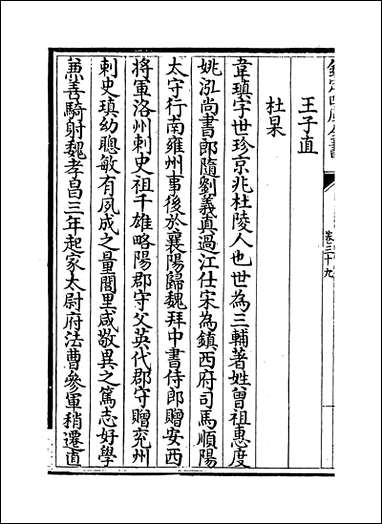 欽定四庫全書
卷三十九
王子直
杜杲
韋瑱字世珍京兆杜陵人也世為三輔著姓曾祖惠度
姚泓尚書郎隨劉義真過江仕宋為鎮西府司馬順陽
太守行南雍州事後於襄陽歸魏拜中書侍郎贈安西
將軍洛州刺史祖千雄略陽郡守父英代郡守贈兖州
刺史瑱幼聰敏有夙成之量閭里咸敬異之篤志好學
兼善騎射魏孝昌三年起家太尉府法曹參軍稍遷直